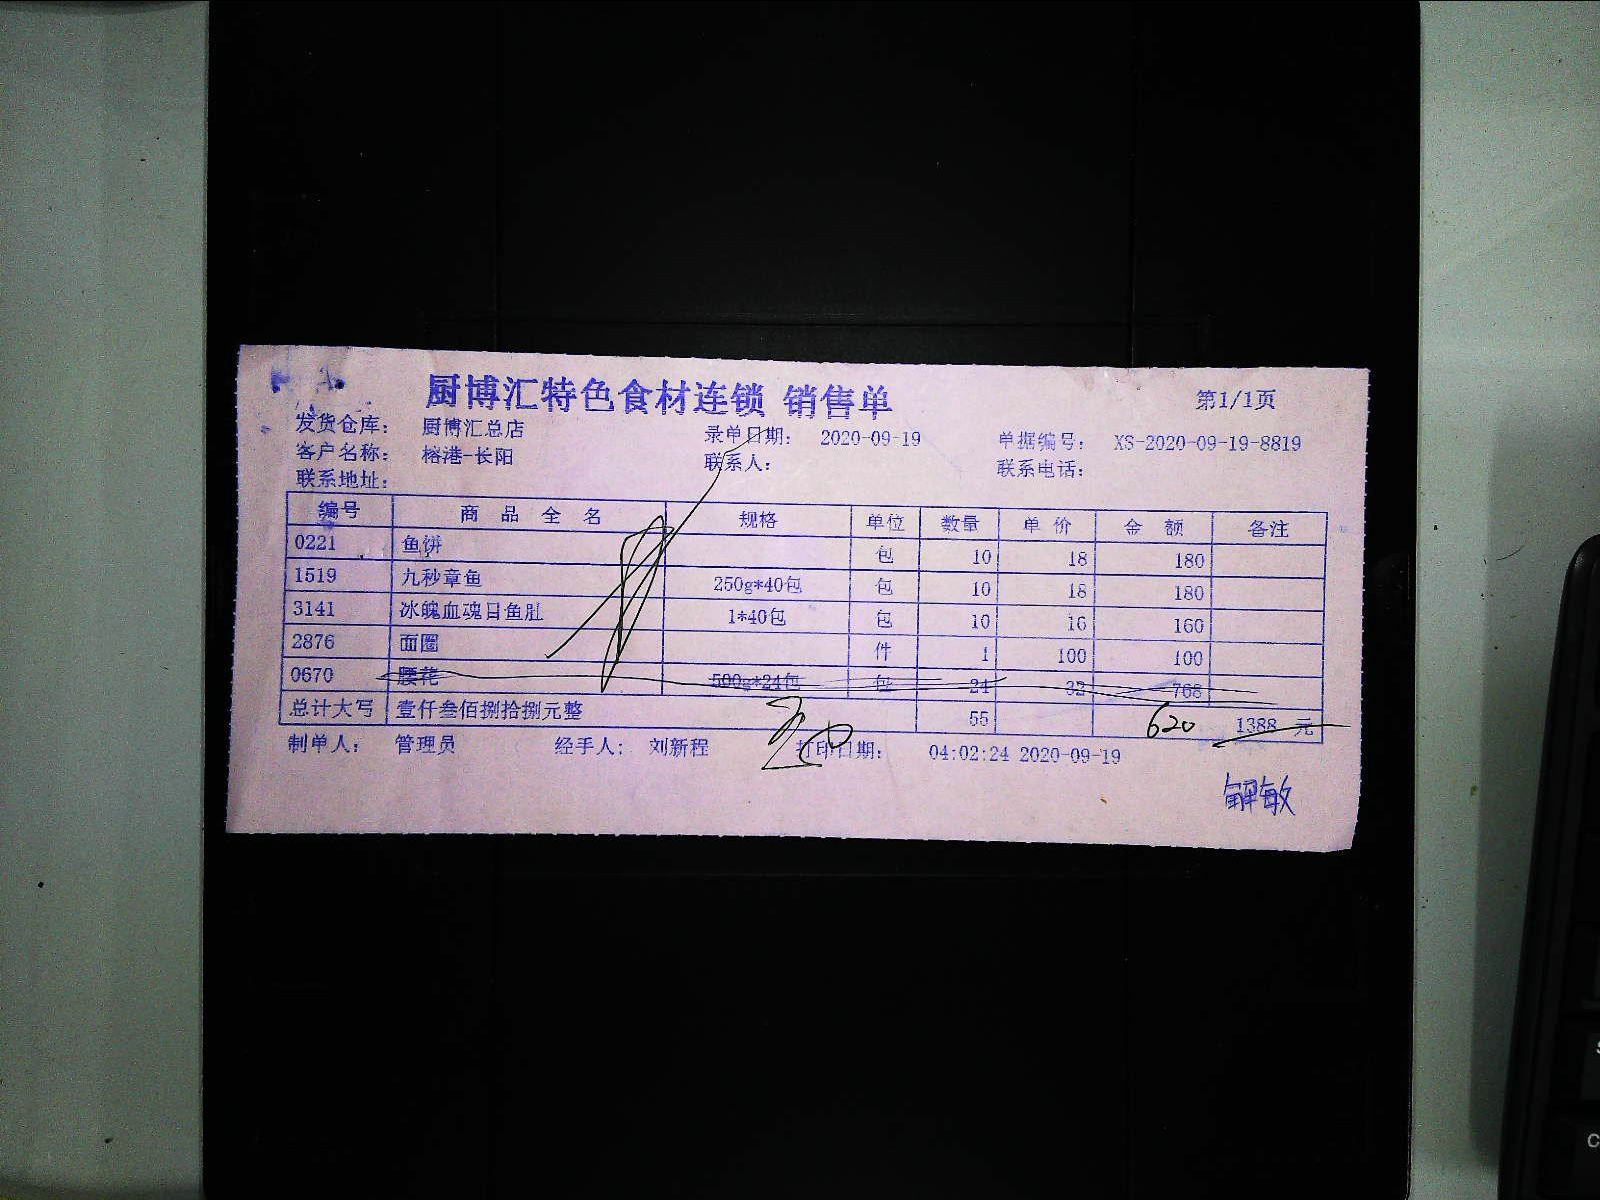 厨博汇特色食材连锁 销售单 第1/1页
发货仓库： 厨博汇总店 录单日期： 2020-09-19 单据编号： XS-2020-09-19-8819
客户名称： 榕港-长阳 联系人： 联系电话：
联系地址：
编号 商 品 全 名 规格 单位 数量 单 价 金 额 备注
0221 鱼饼 包 10 18 180
1519 九秒章鱼 250g*40包 包 10 18 180
3141 冰魄血魂目鱼肚 1*40包 包 10 16 160
2876 面圈 件 1 100 100
0670 腰花 500g*24包 包 24 32 768
总计大写 壹仟叁佰捌拾捌元整 55 620 1388 元
制单人： 管理员 经手人： 刘新程 打印日期： 04:02:24 2020-09-19
解敏